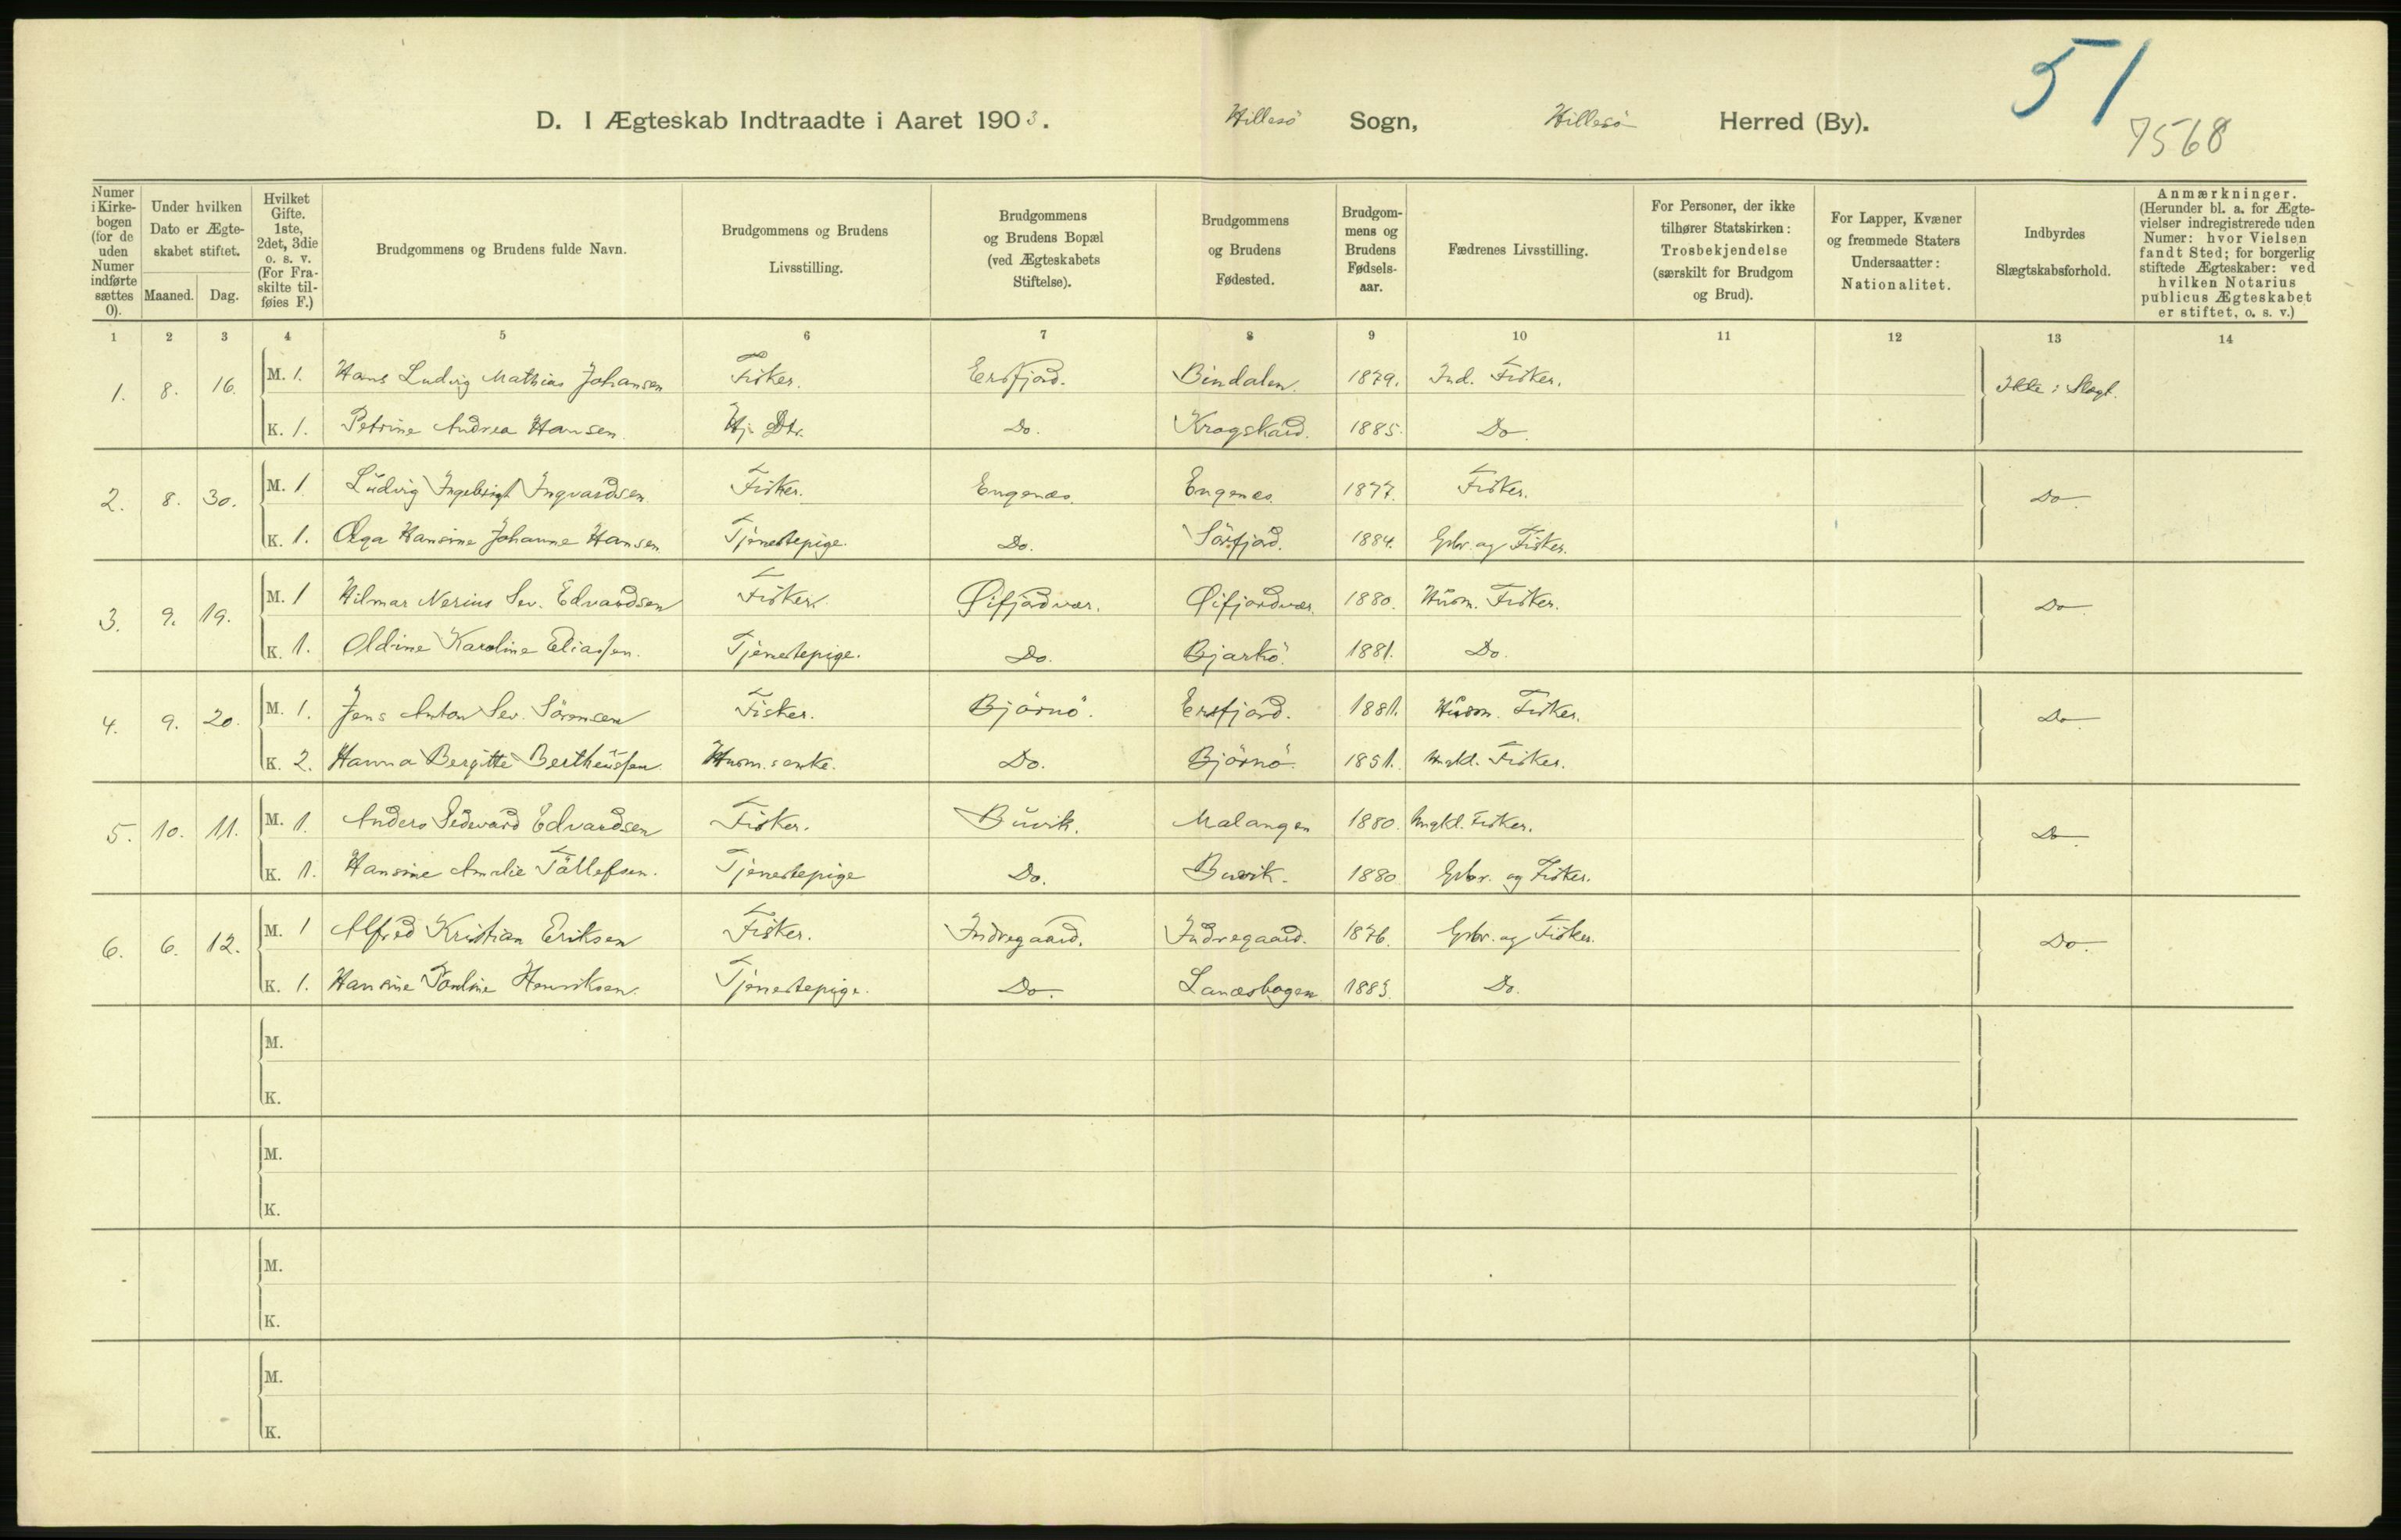 51
7568
D. I Ægteskab Indtraadte i Aaret 1903. Hillesö Sogn, Hillesö Herred (By).
Numer i Kirkebogen (for de uden Numer indførte sættes 0). | Under hvilken Dato er Ægteskabet stiftet. Maaned. Dag. | Hvilket Gifte. 1ste, 2det, 3die o. s. v. (For Fraskilte tilføies F.) | Brudgommens og Brudens fulde Navn. | Brudgommens og Brudens Livsstilling. | Brudgommens og Brudens Bopæl (ved Ægteskabets Stiftelse). | Brudgommens og Brudens Fødested. | Brudgommens og Brudens Fødselsaar. | Fædrenes Livsstilling. | For Personer, der ikke tilhører Statskirken: Trosbekjendelse (særskilt for Brudgom og Brud). | For Lapper, Kvæner og fremmede Staters Undersaatter: Nationalitet. | Indbyrdes Slægtskabsforhold. | Anmærkninger. (Herunder bl. a. for Ægtevielser indregistrerede uden Numer: hvor Vielsen fandt Sted; for borgerlig stiftede Ægteskaber: ved hvilken Notarius publicus Ægteskabet er stiftet, o. s. v.)
1 2 3 4 5 6 7 8 9 10 11 12 13 14
1. 8. 16. M. 1. Hans Ludvig Mathias Johansen Fisker. Ersfjord. Bindalen. 1879. Ind. Fisker. Ikke i Slægt.
K. 1. Petrine Andrea Hansen Hj. Dtr. Do. Krogskard. 1885. Do.
2. 8. 30. M. 1 Ludvig Ingebrigt Ingvardsen Fisker. Engenæs. Engenes. 1877. Fisker. Do.
K. 1. Olga Hansine Johanne Hansen Tjenestepige. Do. Sörfjord. 1884. Gbr. og Fisker.
3. 9. 19. M. 1 Hilmar Nerius Sev. Edvardsen Fisker. Øifjordvær. Øifjordvær. 1880. Husm. Fisker. Do.
K. 1. Oldine Karoline Eliassen. Tjenestepige. Do. Bjarkö. 1881. Do.
4. 9. 20. M. 1. Jens Anton Sev. Sörensen Fisker. Björnö. Ersfjord. 1881. Husm. Fisker. Do
K. 2. Hanna Bergitte Bertheussen Husm. enke. Do. Björnö. 1851. Fisker.
5. 10. 11. M. 1. Anders Sedevard Edvardsen Fisker. Buvik. Malangen 1880. Fisker. Do.
K. 1. Hansine Amalie Töllefsen. Tjenestepige Do. Buvik. 1880 Gbr. og Fisker.
6. 6. 12. M. 1 Alfred Kristian Eriksen Fisker. Indregaard. Indregaard. 1876. Gbr. og Fisker. Do.
K. 1. Hansine Henriksen. Tjenestepige. Do. Lanesbogen 1883. Do.
M.
K.
M.
K.
M.
K.
M.
K.